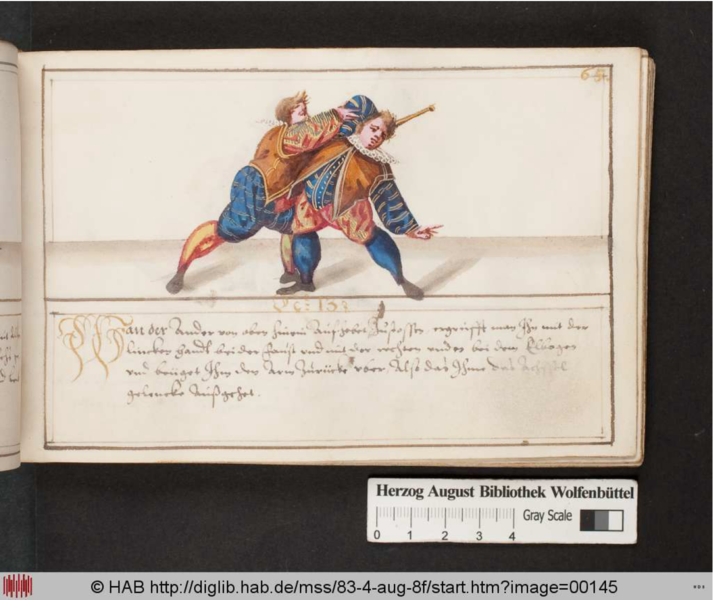 65.
No: 133
Wan der Ander von oben hinein auf einen Zustossen ergreifft man Ihn mit der
lincken handt bei der faust vnd mit der rechten vnden bei dem Elbogen
vnd beuget Ihm den Arm Zurücke vber Also das Ihme das Achssel
gelencke Außgehet.
Herzog August Bibliothek Wolfenbüttel
Gray Scale
0 1 2 3 4
© HAB http://diglib.hab.de/mss/83-4-aug-8f/start.htm?image=00145